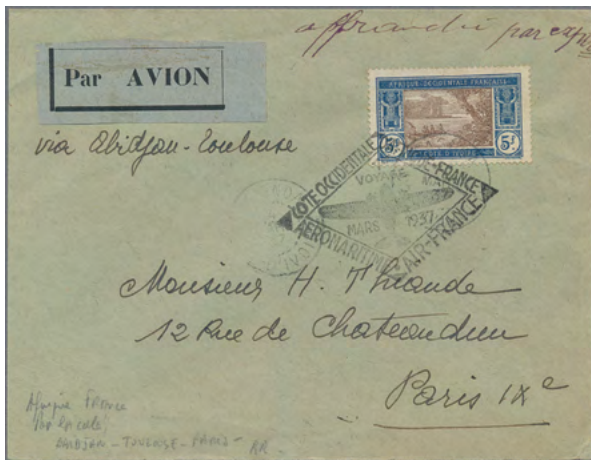 affranchi par
Par AVION
AFRIQUE OCCIDENTALE FRANÇAISE
5F 5F
COTE D'IVOIRE
via Abidjan-Toulouse
COTE OCCIDENTALE FRANCE
VOYAGE
MARS 1937
AEROMARITIME AIR-FRANCE
Monsieur H. Thiande
12 Rue de Chateaudun
Paris IXe
Afrique France
ABIDJAN - TOULOUSE - PARIS - RR